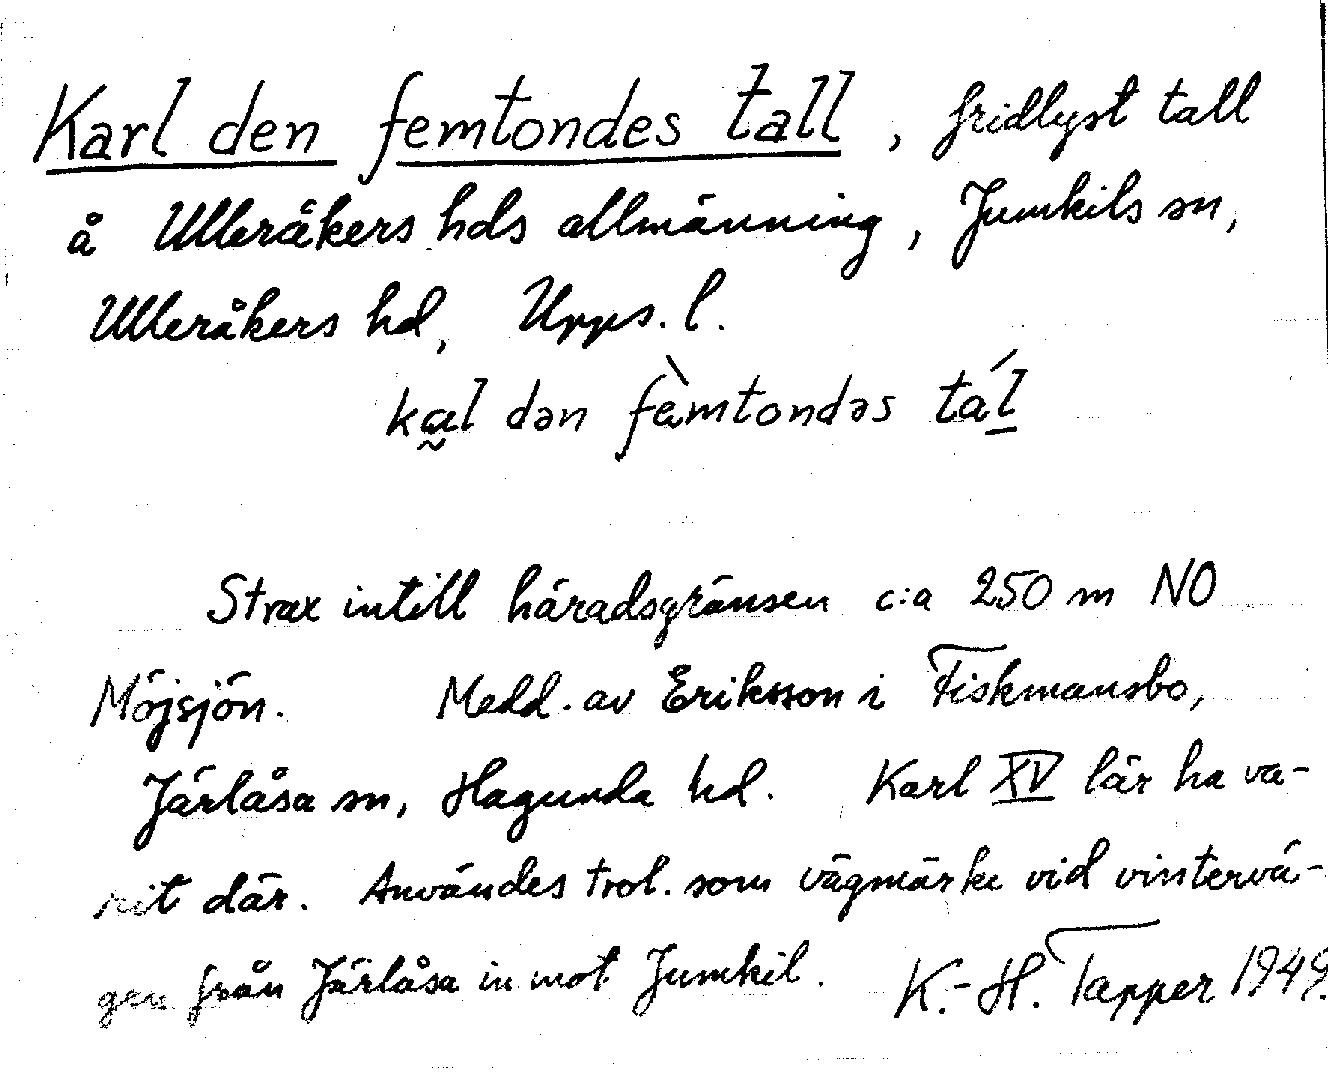 Karl den femtondes tall, fridlyst tall
å Ulleråkers hds allmänning, Jumkils sn,
Ulleråkers hd, Upps. l.
ka̰l dən fèmtondəs tál̲
Strax intill häradsgränsen c:a 250 m NO
Möjsjön. Medd. av Eriksson i Fiskmansbo,
Järlåsa sn, Hagunda hd. Karl XV lär ha va-
rit där. Användes trol. som vägmärke vid vintervä-
gen från Järlåsa in mot Jumkil. K.-H. Tapper 1949.